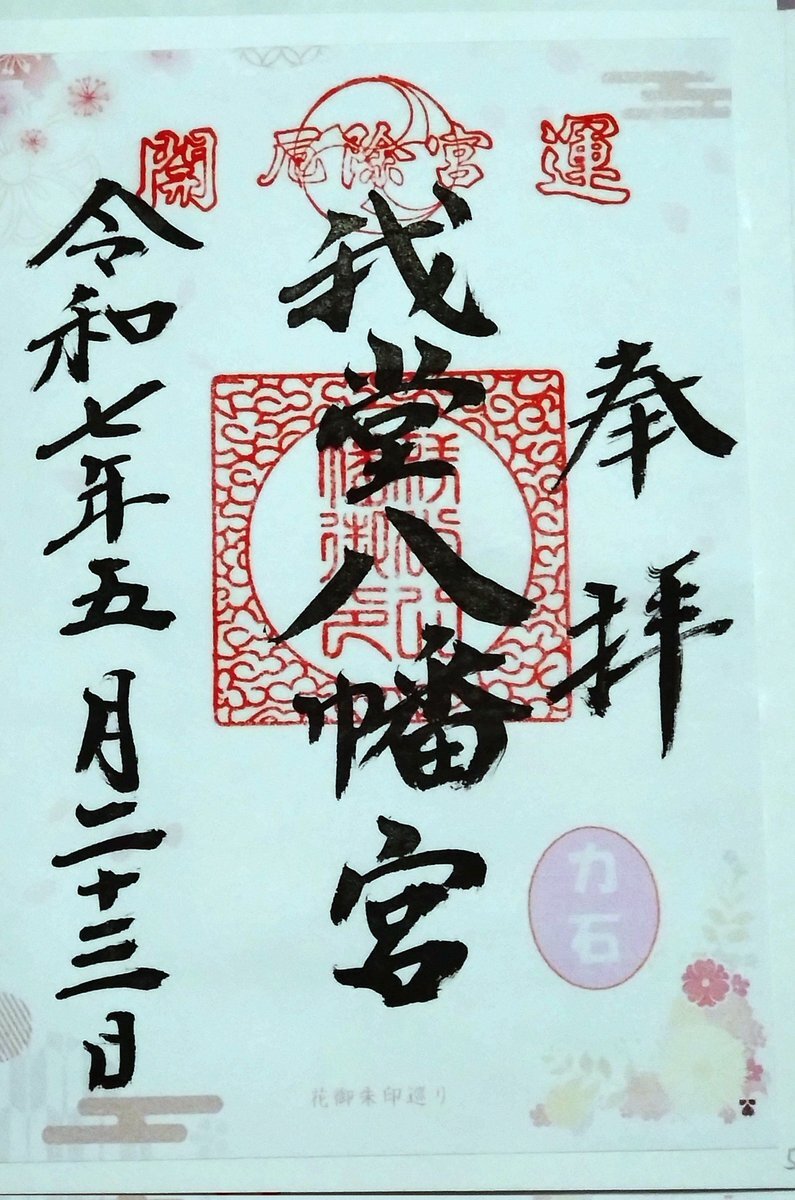 開 厄除宮 運
奉拝
我堂八幡宮
令和七年五月二十三日
力石
花御朱印巡り